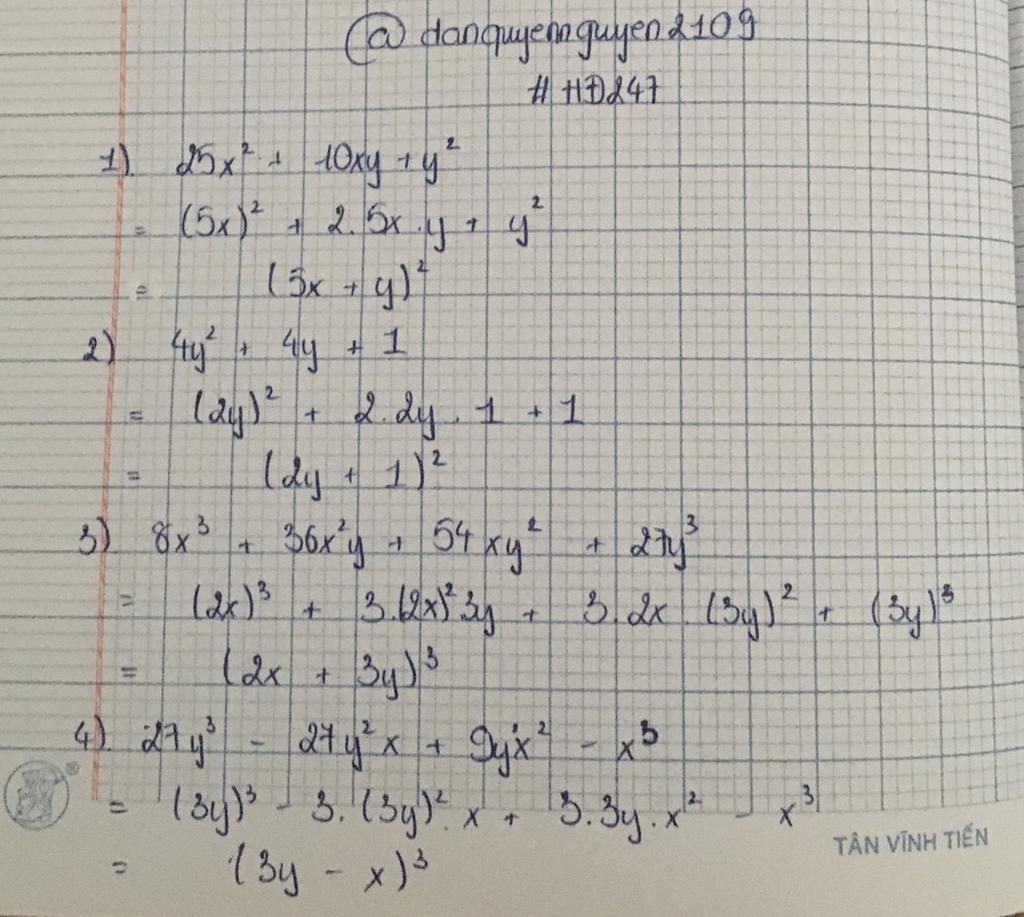 @danquyennguyen2109
# HĐ247
1) 25x² + 10xy + y²
= (5x)² + 2.5x.y + y²
= (5x + y)²
2) 4y² + 4y + 1
= (2y)² + 2.2y.1 + 1
= (2y + 1)²
3) 8x³ + 36x²y + 54xy² + 27y³
= (2x)³ + 3.(2x)²3y + 3.2x.(3y)² + (3y)³
= (2x + 3y)³
4) 27y³ - 27y²x + 9yx² - x³
= (3y)³ - 3.(3y)².x + 3.3y.x² - x³
TÂN VĨNH TIẾN
= (3y - x)³